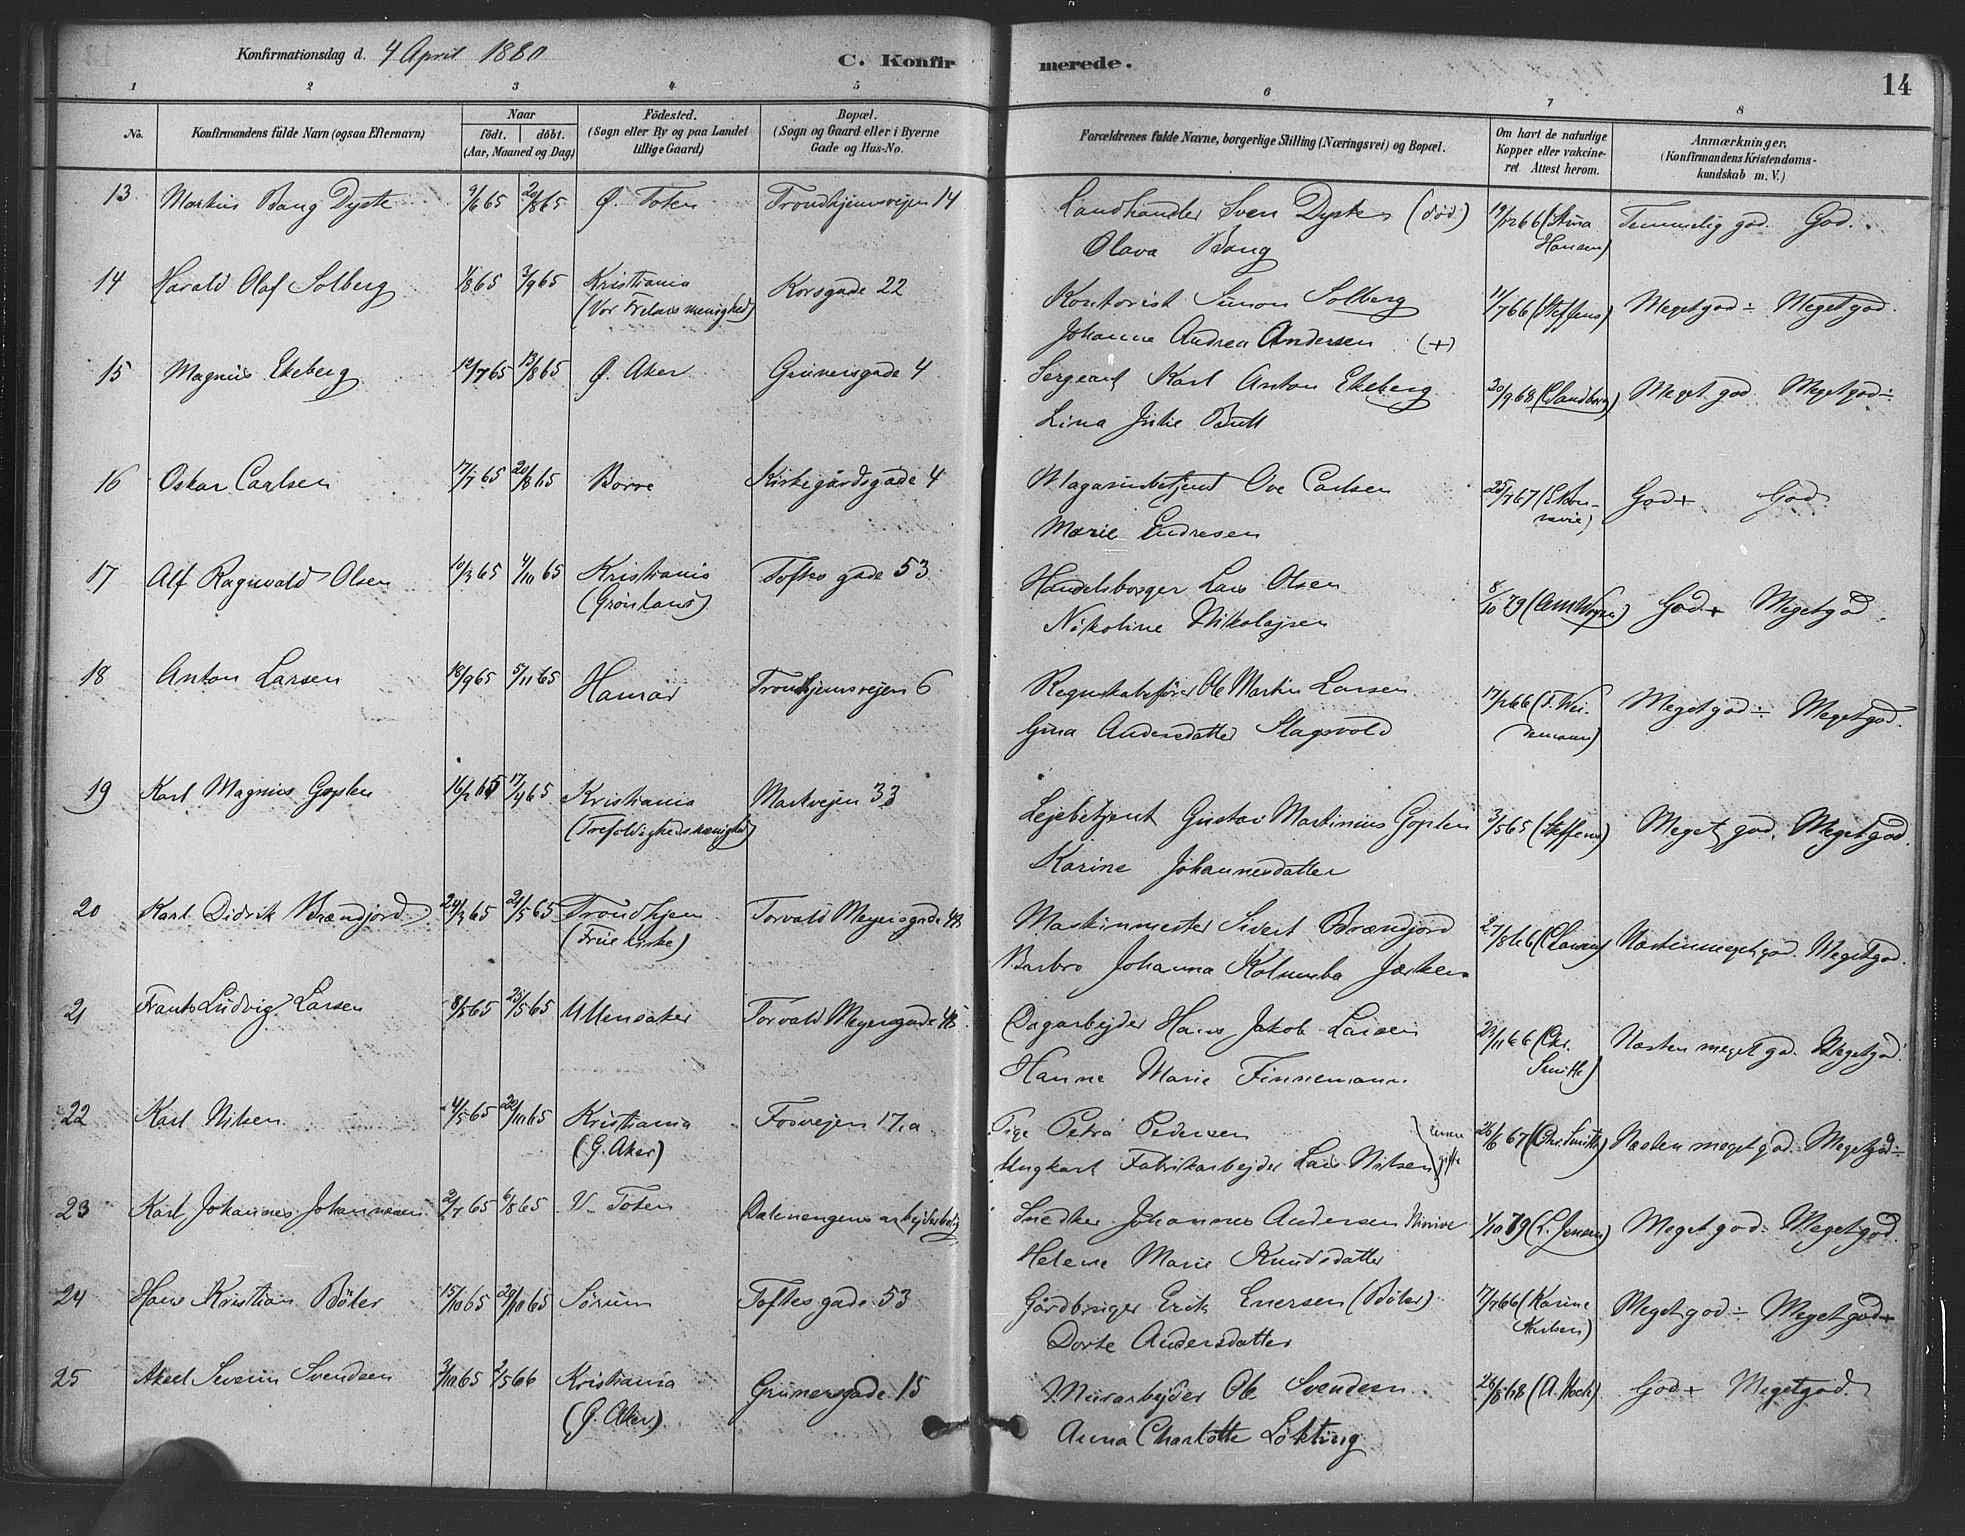 Konfirmationsdag d. 4 April 1880
C. Konfirmerede.
14
1 2 3 4 5 6 7 8
No.
Konfirmandens fulde Navn (ogsaa Efternavn)
Naar
født. døbt.
(Aar, Maaned og Dag)
Fødested.
(Sogn eller By og paa Landet
tillige Gaard)
Bopæl.
(Sogn og Gaard eller i Byerne
Gade og Hus-No.
Forældrenes fulde Navne, borgerlige Stilling (Næringsvei) og Bopæl.
Om havt de naturlige
Kopper eller vakcine-
ret. Attest herom.
Anmærkninger,
(Konfirmandens Kristendoms-
kundskab m. V.)
13 Markus Bang Dyste 9/6 65 20/8 65 Ø. Toten Trondhjemsvejen 14 Landhandler Sven Dyste (død) 19/12 66 (Stina Temmelig god. God.
Olava Bang Hansen)
14 Harald Olaf Solberg 1/8 65 3/9 65 Kristiania Korsgade 22 Kontorist Simon Solberg 11/7 66 (Steffens) Megetgod ÷ Megetgod.
(Vor Frelsers menighed) Johanne Andrea Andersen (+)
15 Magnus Ekeberg 12/7 65 13/8 65 Ø. Aker Grünersgade 4 Sergeant Karl Anton Ekeberg 30/9 68 (Sandberg) Meget god. Megetgod ÷
Lina Julie Bull
16 Oskar Carlsen 17/7 65 20/8 65 Borre Kirkegårdsgade 4 Magasinbetjent Ove Carlsen 25/7 67 God + God
Marie Endresen
17 Alf Ragnvald Olsen 10/3 65 4/10 65 Kristiania Toftes gade 53 Handelsborger Lars Olsen 8/10 79 God + Megetgod.
(Grønland) Nikoline Nikolajsen
18 Anton Larsen 18/9 65 5/11 65 Hamar Trondhjemsvejen 6 Regnskabsfører Ole Martin Larsen 17/12 66 (F. Wei- Megetgod ÷ Megetgod.
Gina Andersdatter Slagsvold demann)
19 Karl Magnus Goplen 16/2 65 17/4 65 Kristiania Markvejen 33 Lejebetjent Gustav Martinius Goplen 3/5 65 (Steffens) Meget god. Megetgod.
(Trefoldighedsmenighed) Karine Johannesdatter
20 Karl Didrik Brændjord 24/3 65 21/5 65 Trondhjem Torvald Meyersgade 48 Maskinmester Sivert Brændjord 27/8 66 Næsten meget god. Megetgod.
(Frue kirke) Barbro Johanna Kolumba
21 Frants Ludvig Larsen 8/3 65 25/5 65 Ullensaker Torvald Meyersgade 48 Dagarbejder Hans Jakob Larsen 23/11 66 (Chr. Næsten meget god. Megetgod.
Hanne Marie Finnemann Smith)
22 Karl Nilsen 4/5 65 22/10 65 Kristiania Fosvejen 17.a Pige Petra Pedersen 26/6 67 (Chr. Smith) Næsten meget god. Megetgod ÷
(G. Aker) Ungkarl Fabrikarbejder Lars Nilsen gifte
23 Karl Johannes Johannesen 2/7 65 6/8 65 V. Toten Dælenengens arbejderbolig Snedker Johannes Andersen 1/10 79 (L. Jensen) Megetgod. Megetgod.
Helene Marie Knudsdatter
24 Hans Kristian Bøler 15/10 65 29/10 65 Sørum Toftesgade 53 Gårdbruger Erik Enersen (Bøler) 17/7 66 (Karine Megetgod ÷ Megetgod +
Dorte Andersdatter
25 Aksel Severin Svendsen 3/10 65 2/5 66 Kristiania Grünersgade 15 Murarbejder Ole Svendsen 26/8 68 (A. Hock). God + Megetgod.
(G. Aker) Anna Charlotte Løkting